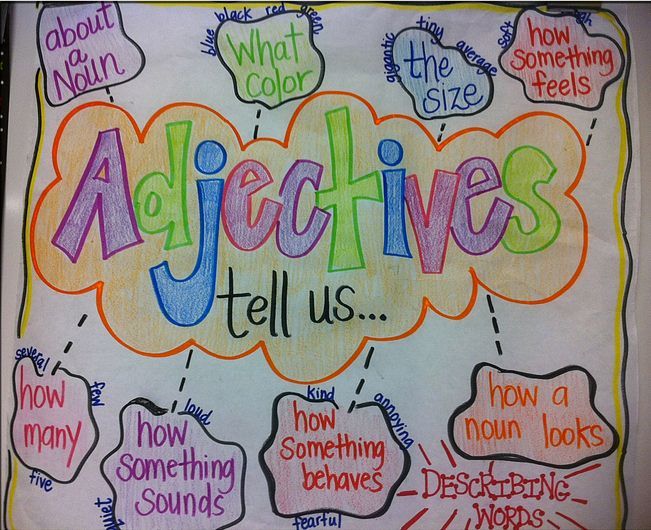 about
a
Noun
blue black red green
What
color
gigantic tiny average
the
size
soft
how
something
feels
Adjectives
tell us...
several
how
many
few
five
loud
how
something
sounds
quiet
kind
annoying
how
something
behaves
fearful
how a
noun looks
DESCRIBING
WORDS